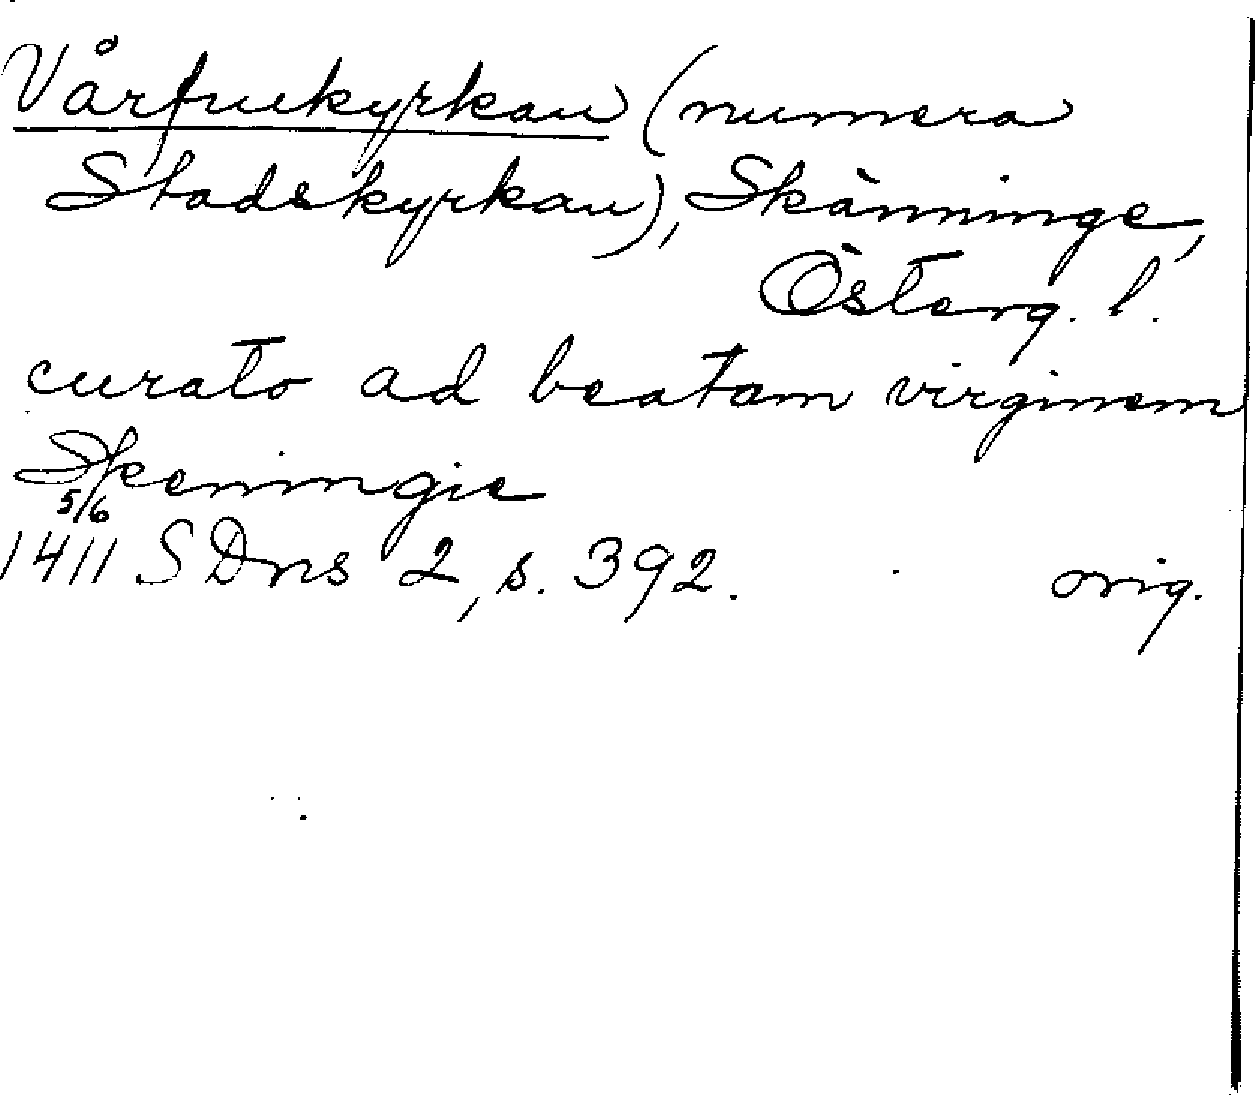 Vårfruekyrkan (numera
Stadskyrkan), Skänninge,
Österg. l.
curato ad beatam virginem
Skeningie
5/6
1411 SDns 2, s. 392. orig.